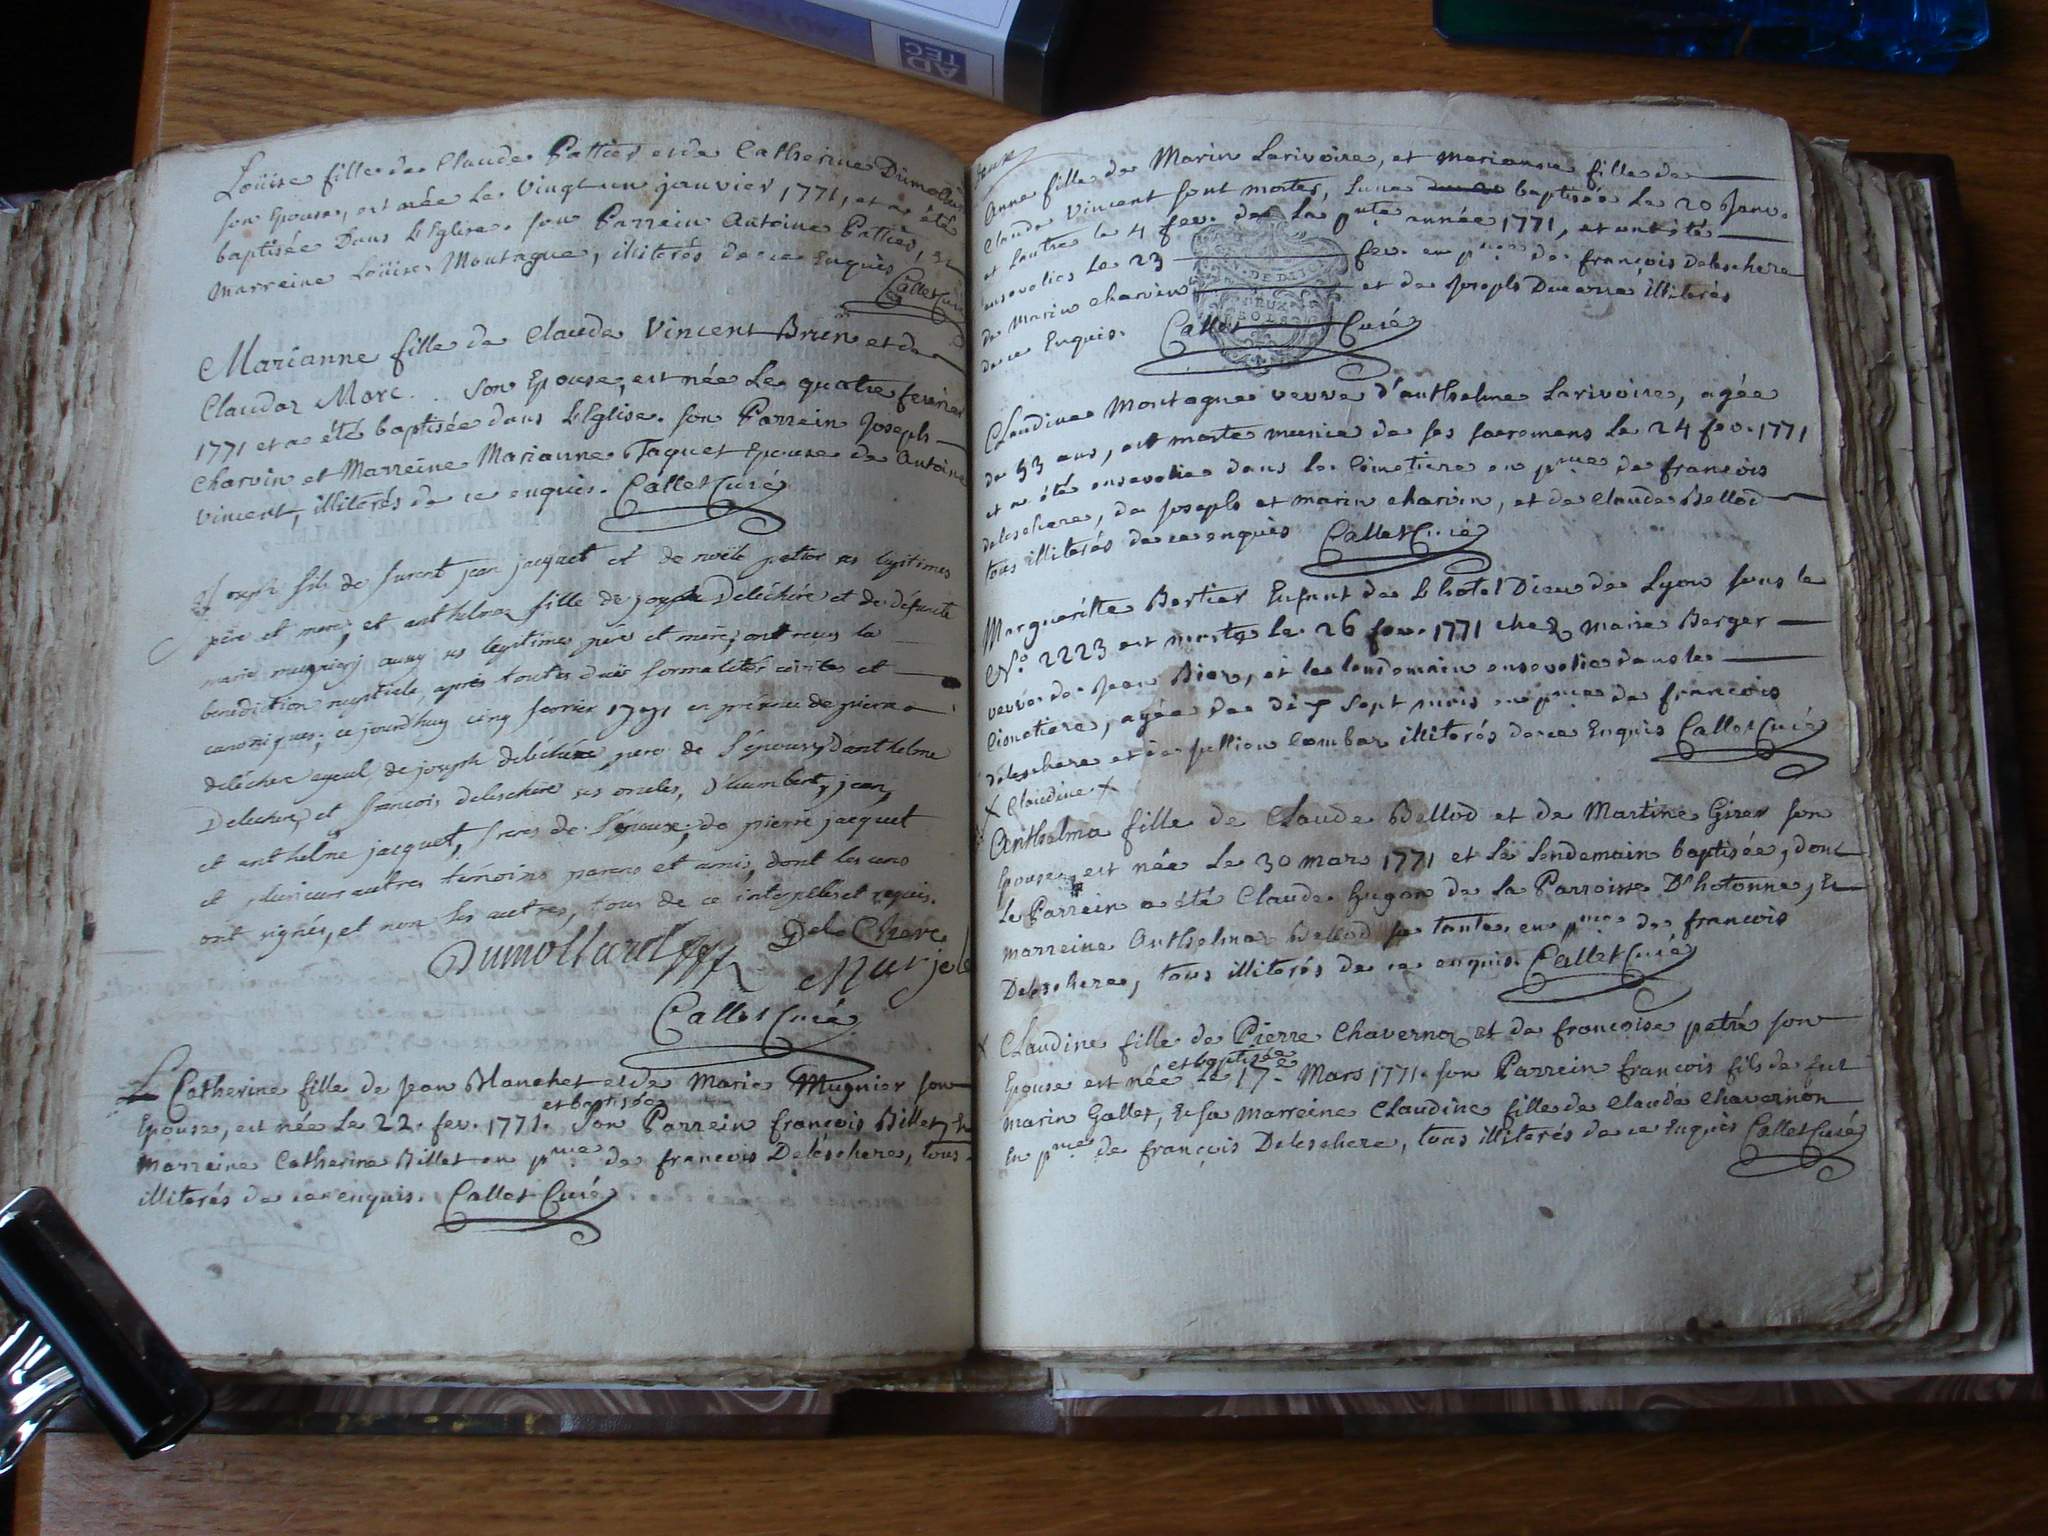 AD
TEC
Loüise fille de Claude Pattier et de Catherine Dumolar
son Epouse, est née le vingt un janvier 1771, et a été
baptisée dans l'Eglise. son Parrein Antoine Pattier, et
marreine Loüise Montague, illiterés de ce enquis
Callet Curé
Marianne fille de Claude Vincent Brun et de
Claudaz Marc . . son Epouse, est née le quatre fevrier
1771 et a été baptisée dans l'Eglise. son Parrein Joseph
Charvin et Marreine Marianne Taquet Epouse de Antoine
Vincent, illiterés de ce enquis. Callet Curé
Joseph fils de furent jean jacquet et de noële ses legitimes
père et mere, et anthelmaz fille de joseph Deléchére et de défuncte
marie aussy ses legitimes père et mère, ont recus la
benediction nuptiale, après toutes formalités civiles et
canoniques, ce jourdhuy cinq fevrier 1771 en présence de pierre
deléchere ayeul de joseph deléchère pere de l'épouse, d'anthelme
Delechere, et francois deleschére ses oncles, d'humbert, jean,
et anthelme jacquet, freres de l'époux, de pierre jacquet
et plusieurs autres témoins parens et amis, dont les uns
ont signés, et non les autres, tous de ce interpellés et requis.
Dumollard Delechere
Callet Curé
Catherine fille de Jean Blanchet et de Marie Mugnier son
et baptisée
Epouse, est née le 22. fev. 1771. Son Parrein françois Billet, Et
Marreine Catherine Billet en pnce de francois Deleschere, tous
illiterés de ce enquis. Callet Curé
Anne fille de Marin Larivoire, et marianne fille de
Claude Vincent sont mortes, lune baptisée le 20 Janv.
et lautre le 4 fev. de la pnte année 1771, et ont été
ensevelies le 23 fev. en pnce de françois Deleschere
de Marin Charvin et de Joseph Ducarre illiterés
de ce Enquis. Callet Curé
DE DIJON
DEUX
SOLS
Claudine Montague veuve d'anthelme Larivoire, agée
de 53 ans, est morte munie de ses sacremens le 24 fev. 1771
et a été ensevelie dans le Cimetiere en pnce de francois
deleschere, de Joseph et marin charvin, et de Claude Bellod
tous illiterés de ce enquis Callet Curé
Marguerite Bertier Enfant de l'hotel Dieu de Lyon sous le
No 2223 est morte le 26 fev. 1771 chez marie Berger
veuve de Jean Bier, et le lendemain ensevelie dans le
Cimetiere, agée de dix sept mois en pnce de francois
deleschere et de illiterés de ce Enquis Callet Curé
X Claudine X
Anthelma fille de Claude Bellod et de Martine Girer son
Epouse, est née le 30 mars 1771 et le lendemain baptisée, dont
le Parrein a été Claude Hugon de la Parroisse D'hotonne, Et
marreine Anthelma Bellod sa tante, en pnce de francois
Deleschere, tous illiterés de ce enquis. Callet Curé
X Claudine fille de Pierre Chavernoz et de francoise petré son
et baptisée
Epouse est née le 17. Mars 1771. son Parrein françois fils de fut
marin Gallet, Et sa marreine Claudine fille de Claude Chavernon
En pnce de françois Deleschere, tous illiterés de ce Enquis Callet Curé